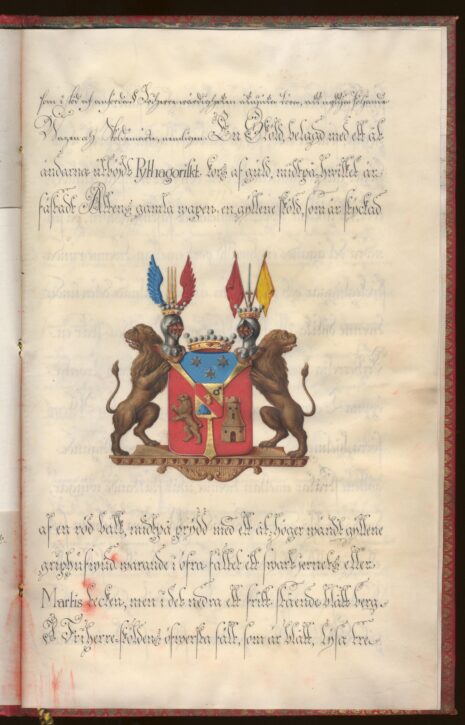 som i tid och
Wapen och Sköldemärke, nemligen: En Sköld, belagd med ett åt
ändarna utböjdt Pythagoriskt kors af guld, midtpå hwilket är
fästadt Ättens gamla wapen, en gyllene sköld, som är styckad
af en röd balk, midtpå prydd med ett åt höger wändt gyllene
griphufwud warande i öfra fältet ett swart jernets eller
Martis tecken, men i det nedra ett fritt stående blått berg.
Friherre sköldens öfwersta fält, som är blått, lysa tre